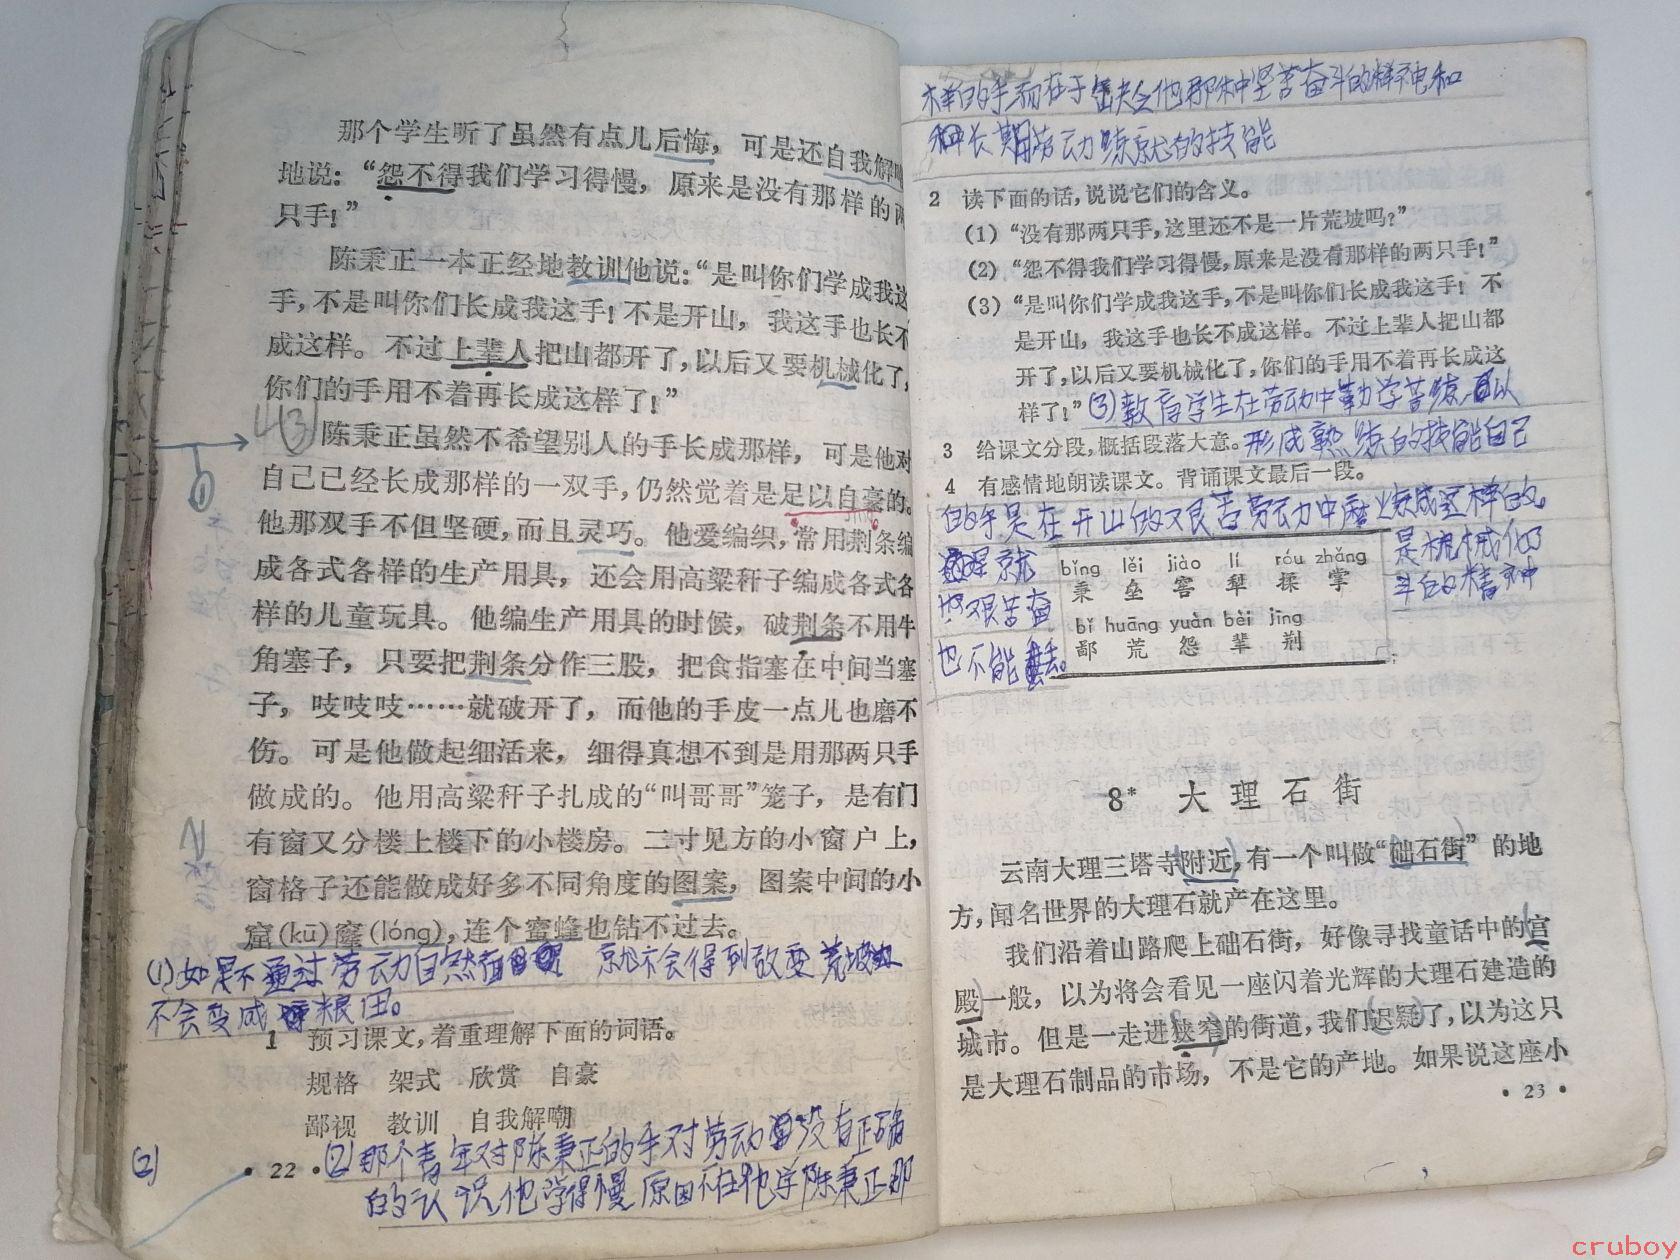 那个学生听了虽然有点儿后悔，可是还自我解嘲
地说：“怨不得我们学习得慢，原来是没有那样的两
只手！”
陈秉正一本正经地教训他说：“是叫你们学成我这
手，不是叫你们长成我这手！不是开山，我这手也长不
成这样。不过上辈人把山都开了，以后又要机械化了，
你们的手用不着再长成这样了！”
陈秉正虽然不希望别人的手长成那样，可是他对
自己已经长成那样的一双手，仍然觉着是足以自豪的。
他那双手不但坚硬，而且灵巧。他爱编织，常用荆条编
成各式各样的生产用具，还会用高粱秆子编成各式各
样的儿童玩具。他编生产用具的时候，破荆条不用牛
角塞子，只要把荆条分作三股，把食指塞在中间当塞
子，吱吱吱……就破开了，而他的手皮一点儿也磨不
伤。可是他做起细活来，细得真想不到是用那两只手
做成的。他用高粱秆子扎成的“叫哥哥”笼子，是有门
有窗又分楼上楼下的小楼房。二寸见方的小窗户上，
窗格子还能做成好多不同角度的图案，图案中间的小
窟(kū)窿(lóng)，连个蜜蜂也钻不过去。
(1)如果不通过劳动自然 就不会得到改变荒坡
不会变成 粮田。
1 预习课文，着重理解下面的词语。
规格 架式 欣赏 自豪
鄙视 教训 自我解嘲
(2)
·22·
(2)那个青年对陈秉正的手对劳动 没有正确
的认识，他学得慢原因不在他学陈秉正那
样的手而在于缺乏他那种坚苦奋斗的精神和
种长期劳动练就的技能
2 读下面的话，说说它们的含义。
(1)“没有那两只手，这里还不是一片荒坡吗？”
(2)“怨不得我们学习得慢，原来是没有那样的两只手！”
(3)“是叫你们学成我这手，不是叫你们长成我这手！不
是开山，我这手也长不成这样。不过上辈人把山都
开了，以后又要机械化了，你们的手用不着再长成这
样了！”
(3)教育学生在劳动中勤学苦练，可以
3 给课文分段，概括段落大意。
形成熟练的技能自己
4 有感情地朗读课文。背诵课文最后一段。
的手是在开山的艰苦劳动中磨炼成这样的。
bǐng lěi jiào lí róu zhǎng
秉 垒 窖 犁 揉 掌
bǐ huāng yuàn bèi jīng
鄙 荒 怨 辈 荆
是机械化的
艰苦奋
斗的精神
也不能丢。
8* 大理石街
云南大理三塔寺附近，有一个叫做“础石街”的地
方，闻名世界的大理石就产在这里。
我们沿着山路爬上础石街，好像寻找童话中的宫
殿一般，以为将会看见一座闪着光辉的大理石建造的
城市。但是一走进狭窄的街道，我们迟疑了，以为这只
是大理石制品的市场，不是它的产地。如果说这座小
·23·
cruboy